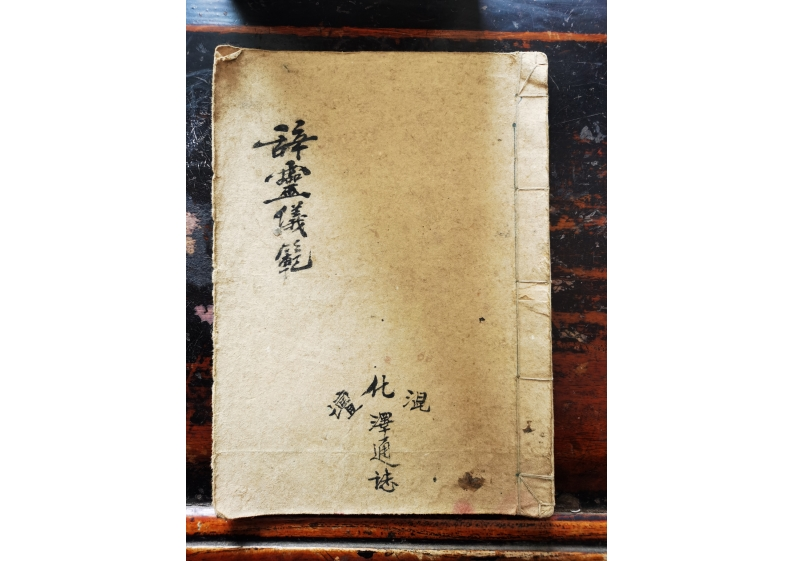 辞靈儀範
混化壇
澤通誌